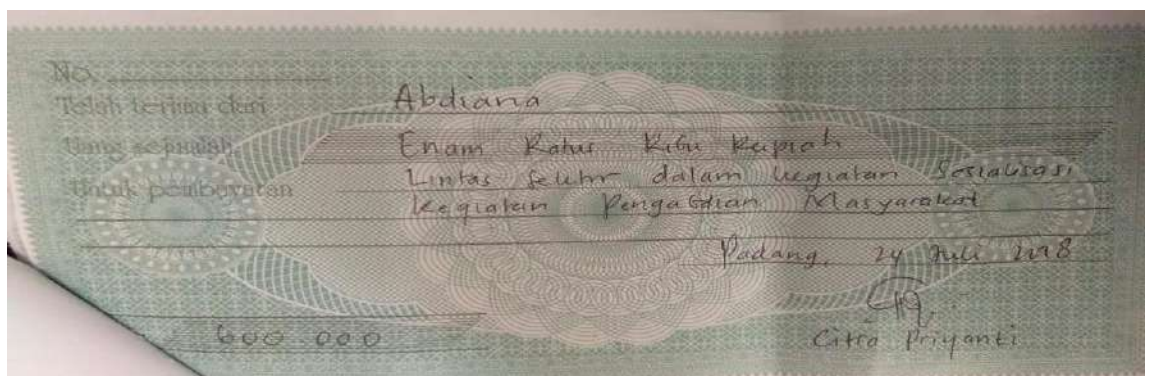 No.
Telah terima dari Abdiana
Uang sejumlah Enam Ratus Ribu Rupiah
Untuk pembayaran Lintas Sektor dalam kegiatan Sosialisasi
kegiatan Pengabdian Masyarakat
Padang, 24 Juli 2018
600 000
Citra Priyanti